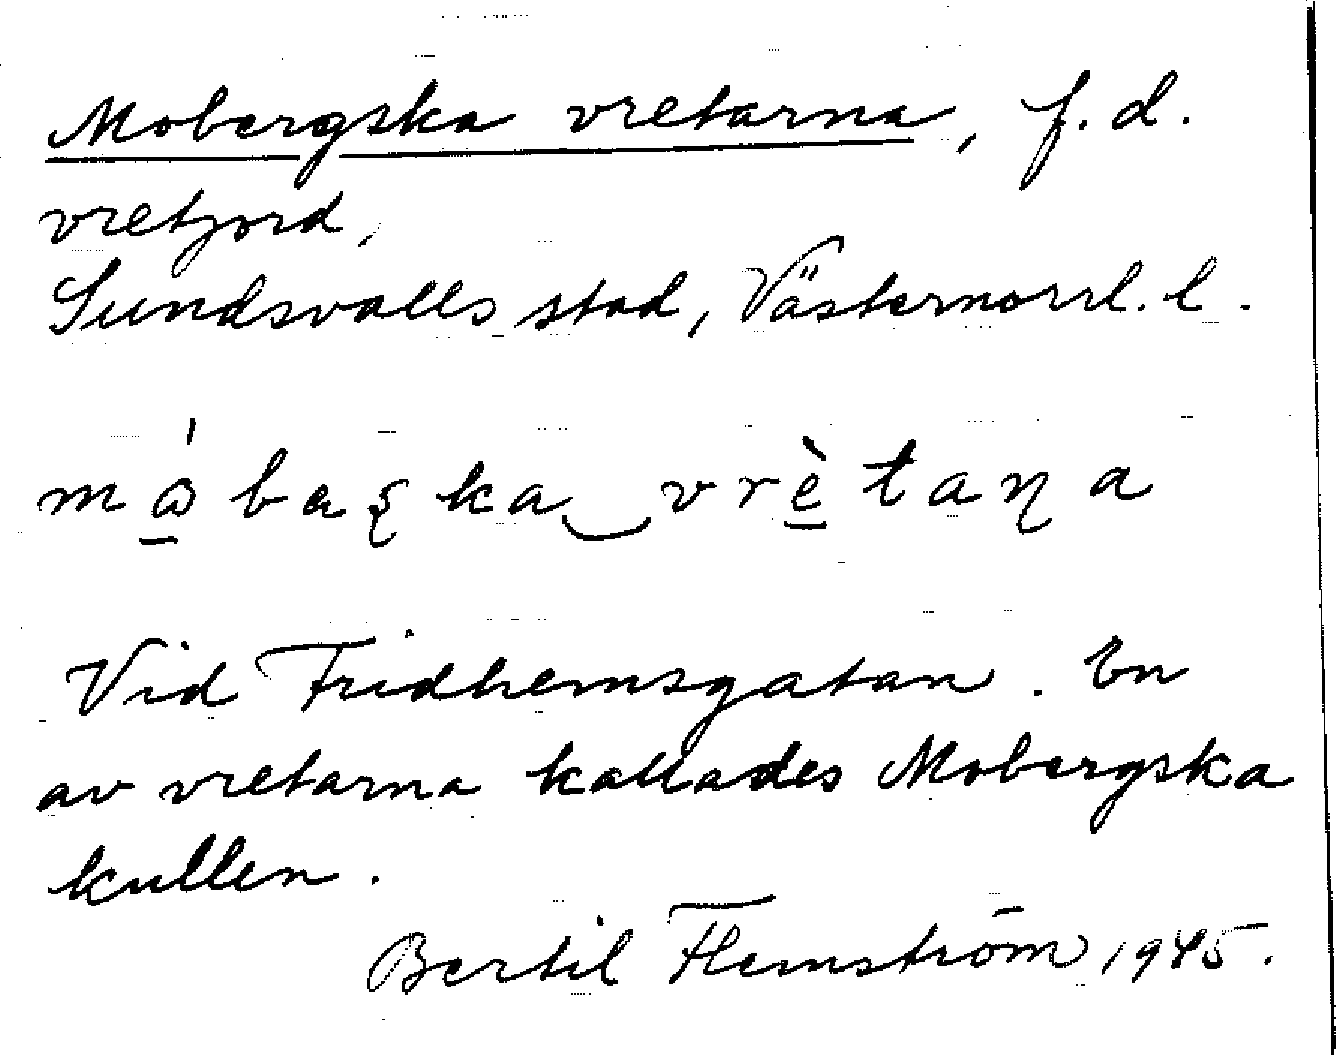 Mobergska vretarna, f. d.
vretjord,
Sundsvalls stad, Västernorrl. l.
vrètaɳa
Vid Fridhemsgatan. En
av vretarna kallades Mobergska
kullen.
Bertil Flemström 1945.